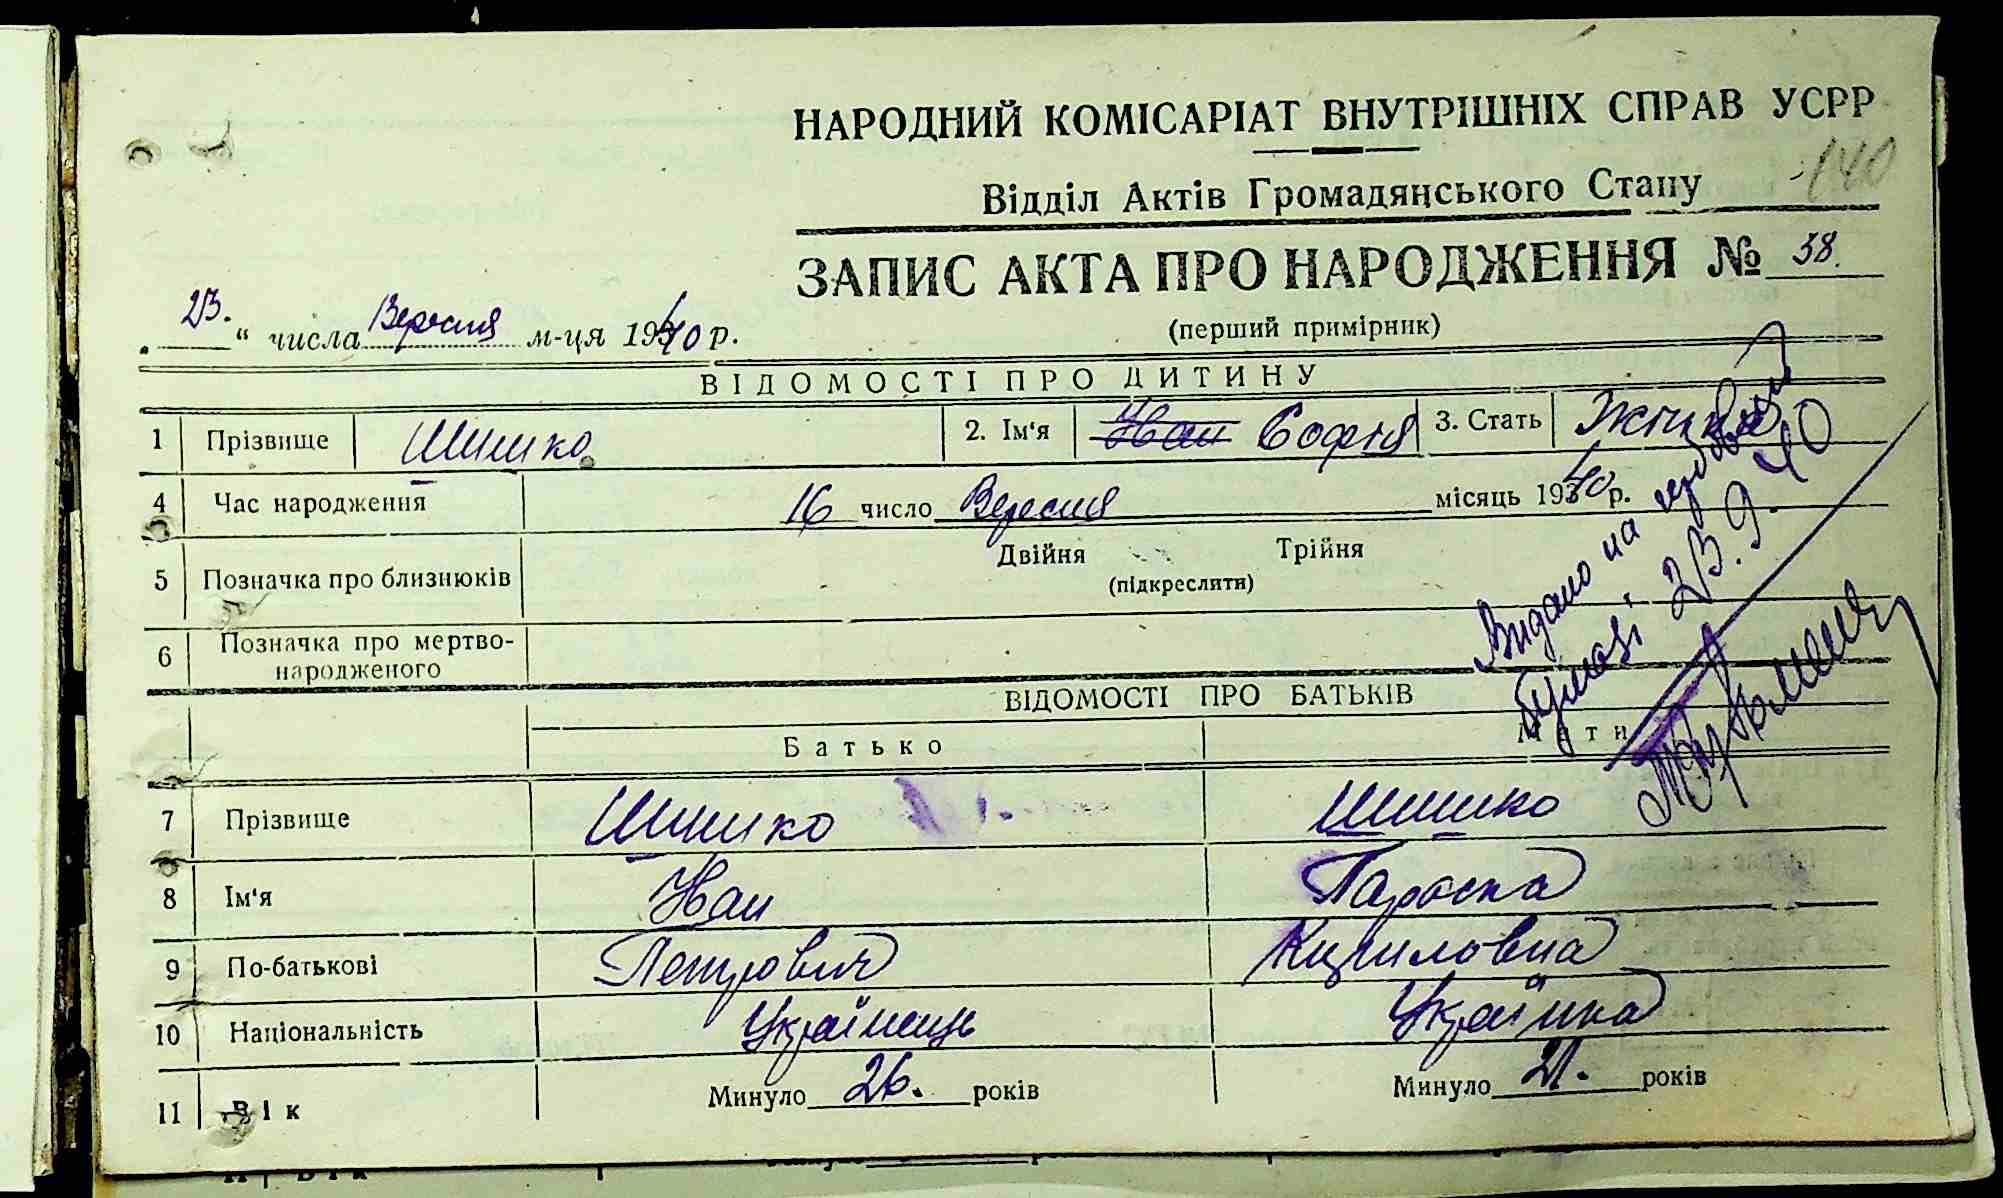 НАРОДНИЙ КОМІСАРІАТ ВНУТРІШНІХ СПРАВ УСРР
140
Відділ Актів Громадянського Стану
ЗАПИС АКТА ПРО НАРОДЖЕННЯ № 38.
(перший примірник)
„23.“ числа Вересня м-ця 1940 р.
ВІДОМОСТІ ПРО ДИТИНУ
1 Прізвище Шишко 2. Ім'я Иван Софія 3. Стать Жіноча
4 Час народження 16 число Вересня місяць 1940 р.
5 Позначка про близнюків Двійня Трійня
(підкреслити)
6 Позначка про мертво-
народженого
Видано на гербовій
бумазі 23.9.40
ВІДОМОСТІ ПРО БАТЬКІВ
Батько Мати
7 Прізвище Шишко Шишко
8 Ім'я Иван Параска
9 По-батькові Петрович Кириловна
10 Національність Українець Українка
11 Вік Минуло 26. років Минуло 21. років